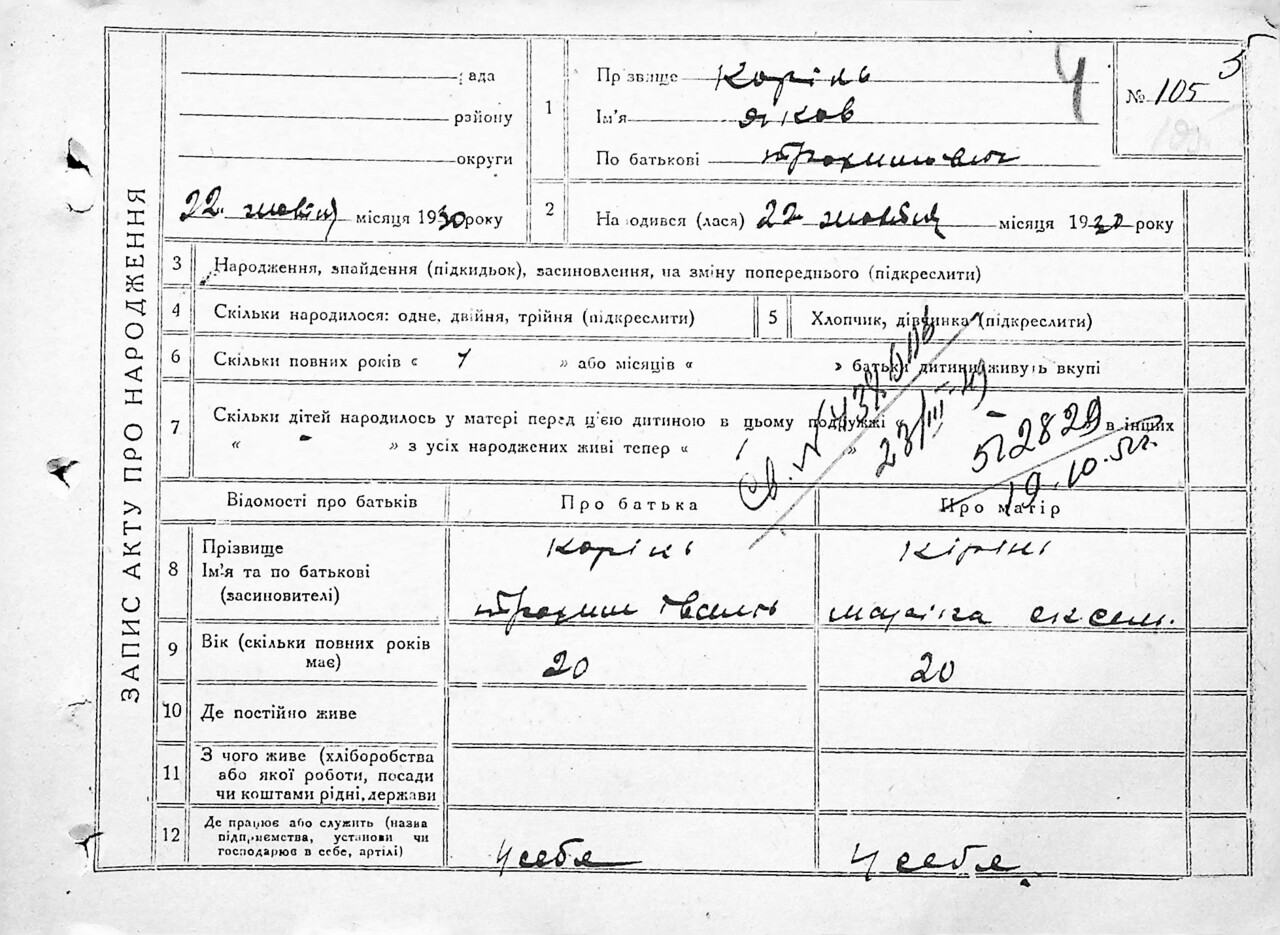 ЗАПИС АКТУ ПРО НАРОДЖЕННЯ
ада
району
округи
22 жовтня місяця 1930 року
1
Пр звище Корінь
Ім'я Яков
По батькові Трохимович
Ч
№ 105
5
2
На одився (лася) 22 жовтня місяця 1930 року
3
Народження, знайдення (підкидьок), засиновлення, на зміну попереднього (підкреслити)
4
Скільки народилося: одне, двійня, трійня (підкреслити)
5
Хлопчик, дівчинка (підкреслити)
6
Скільки повних років « 1 » або місяців « » батьки дитини живуть вкупі
7
Скільки дітей народилось у матері перед ц'єю дитиною в цьому подружжі - в інших
« - » з усіх народжених живі тепер « »
23/III-49
512829
19.10.52г.
Відомості про батьків
Про батька
Про матір
8
Прізвище
Ім'я та по батькові
(засиновителі)
Корінь
Трохим
Кірінь
9
Вік (скільки повних років
має)
20
20
10
Де постійно живе
11
З чого живе (хліборобства
або якої роботи, посади
чи коштами рідні, держави
12
Де працює або служить (назва
підприємства, установи чи
господарює в себе, артілі)
у себе
у себе